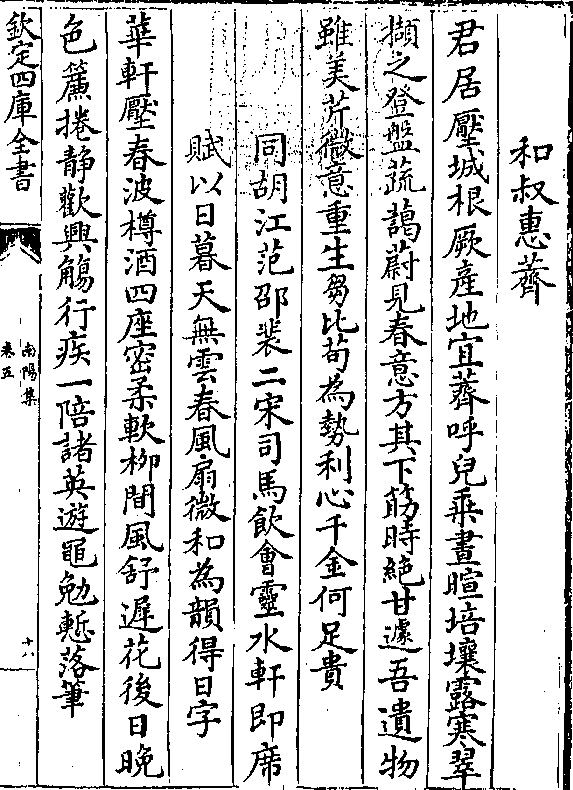 和叔惠薺
君居壓城根厥產地宜薺呼兒乘晝暄培壤露寒翠
擷之登盤蔬藹蔚見春意方其下筯時絶甘遽吾遺物
雖美芹微意重生芻比苟為勢利心千金何足貴
同胡江范邵裴二宋司馬飲會靈水軒即席
賦以日暮天無雲春風扇微和為韻得日字
華軒壓春波樽酒四座密柔軟栁間風舒遲花後日晚
色簾捲靜歡興觴行疾一陪諸英遊黽勉慙落筆
欽定四庫全書
南陽集
卷五
十六